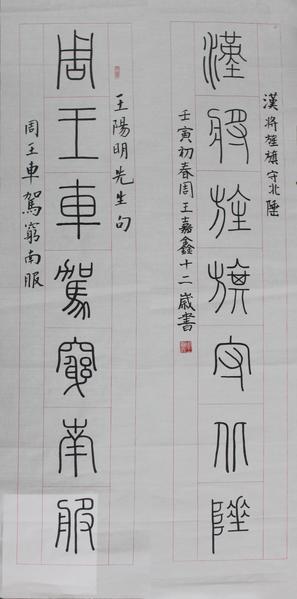 漢將旌旗守北陲
漢將旌旗守北陲
壬寅初春周王嘉鑫十二歲書
王陽明先生句
周王車駕窮南服
周王車駕窮南服